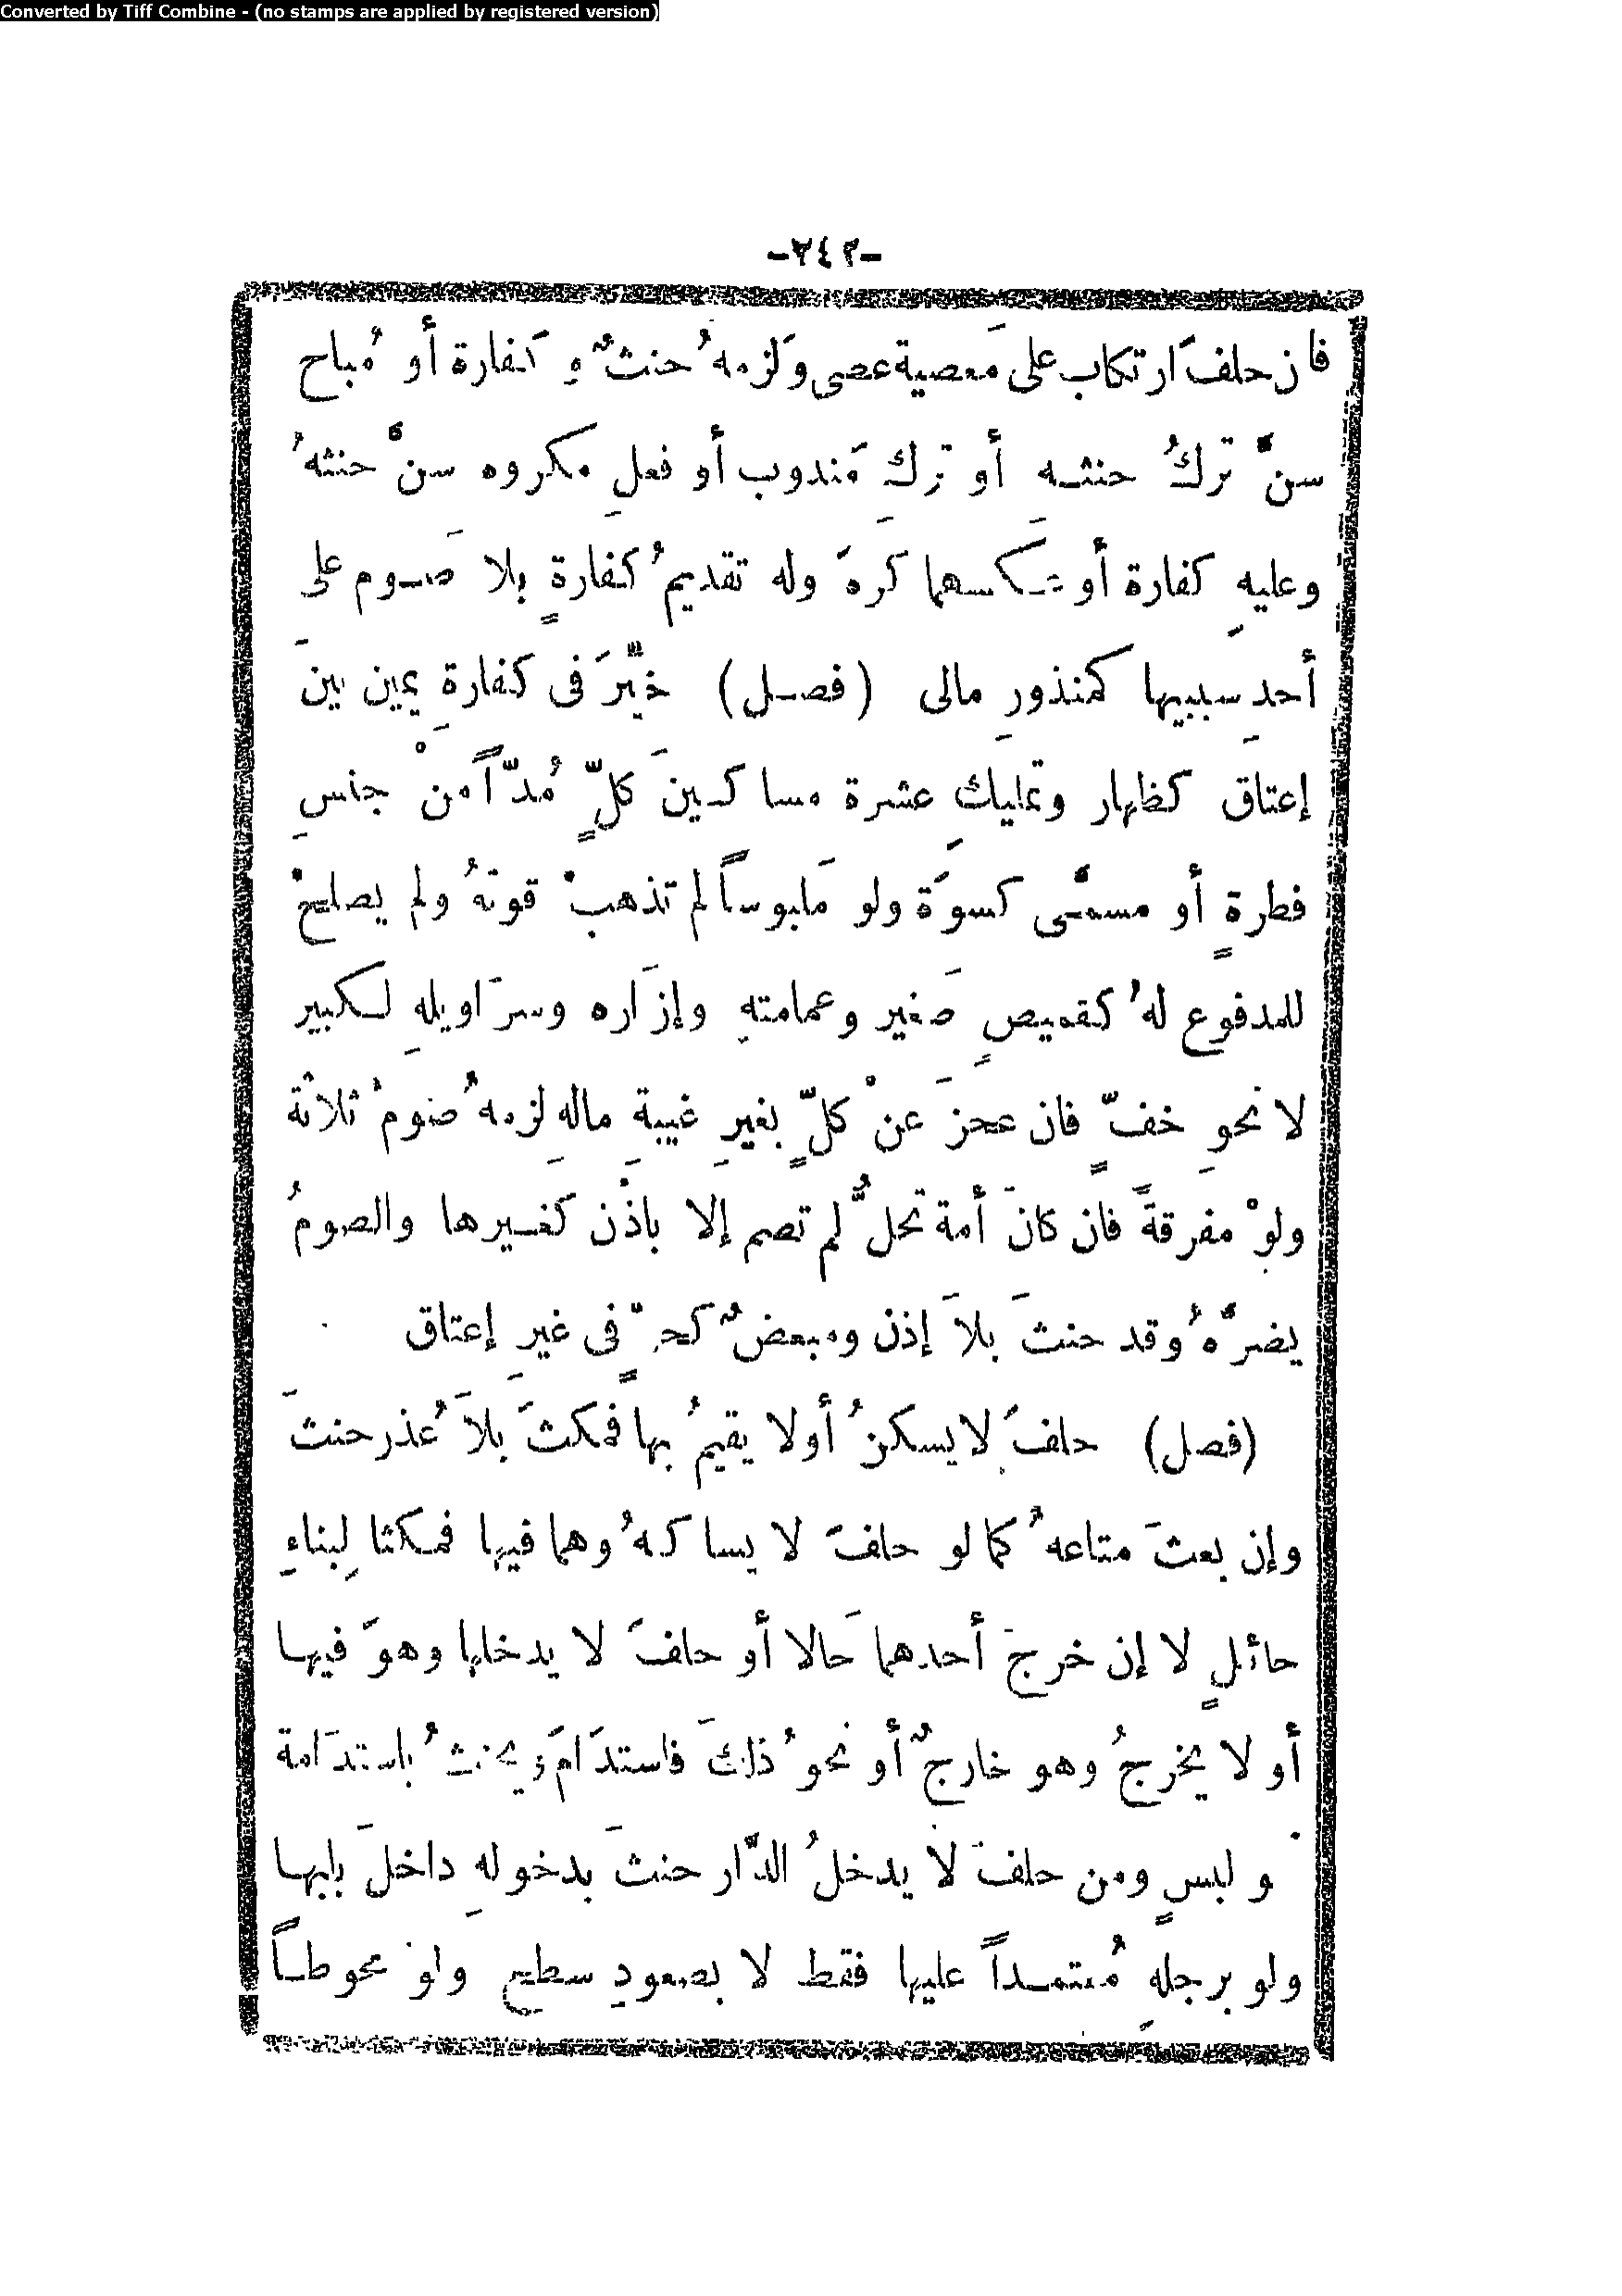 Converted by Tiff Combine - (no stamps are applied by registered version)
-٢٤٢-
فان حلفَ ارتكاب على مَعصية عصى وَلزمهُ حنثٌ وكفارة أو مُباح
سنَّ تركُ حنثه أو ترك مَندوب أو فعلِ مكروه سنَّ حنثهُ
وعليهِ كفارة أو عَكسهما كَرهَ وله تقديمُ كفارةٍ بلا صَوم على
أحدِ سببيها كمنذورِ مالى (فصل) خيِّرَ فى كفارةِ يمين بينَ
إعتاقَ كظهار وتمليكِ عشرة مساكينَ كلٍّ مُدّاً منْ جنسِ
فطرةٍ أو مسمَّى كسوَة ولو مَلبوساً لم تذهبْ قوتهُ ولم يصلحْ
للمدفوع لهُ كقميصِ صَغير وعمامتهِ وإزَاره وسرَاويلهِ لكبير
لا نحوِ خفٍّ فان عجزَ عنْ كلٍّ بغيرِ غيبةِ مالهِ لزمهُ صومُ ثلاثة
ولوْ مفرقةً فان كانَ أمة تحلُّ لم تصم إلا باذْن كغيرها والصومُ
يضرَّهُ وقد حنثَ بلاَ إذن ومبعضٌ كحرٍّ فى غيرِ إعتاق
(فصل) حلفَ لا يسكنُ أولا يقيمُ بها فمكثَ بلاَ عُذر حنثَ
وإن بعثَ متاعهُ كما لو حلفَ لا يساكنهُ وهما فيها فمكثا لِبناءِ
حائلٍ لا إن خرجَ أحدهما حَالا أو حلفَ لا يدخلها وهوَ فيها
أو لا يخرجُ وهو خارجٌ أو نحوُ ذلكَ فاستدَامَ ويحنثُ باستدَامة
ولبسٍ ومن حلفَ لا يدخلُ الدَّار حنثَ بدخولهِ داخلَ بابها
ولو برجلهِ مُعتمداً عليها فقط لا بصعودِ سطح ولوْ محوطاً